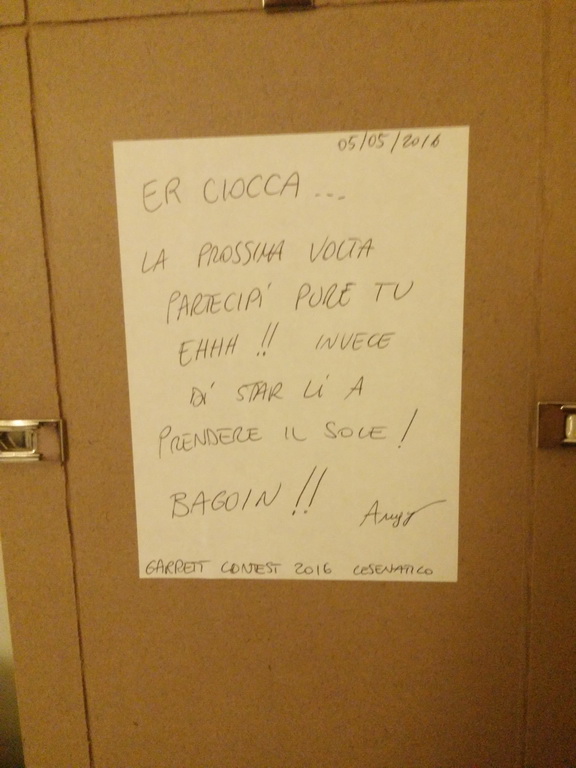 05/05/2016
ER CIOCCA...
LA PROSSIMA VOLTA
PARTECIPI PURE TU
EHHH!! INVECE
DI STAR LI A
PRENDERE IL SOLE!
BAGOIN!!
GARRETT CONTEST 2016 CESENATICO